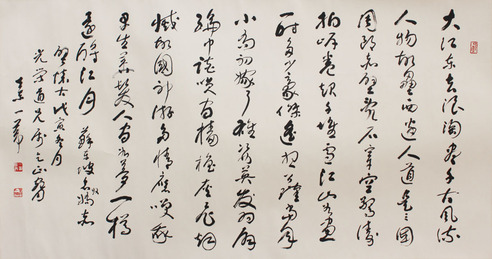 大江东去浪淘尽千古风流
人物故垒西边人道是三国
周郎赤壁乱石穿空惊涛
拍岸卷起千堆雪江山如画
一时多少豪杰遥想公瑾当年
小乔初嫁了雄姿英发羽扇
纶巾谈笑间樯橹灰飞烟
灭故国神游多情应笑我
早生华发人间如梦一樽
还酹江月 苏东坡 赤
壁怀古 戊寅冬月